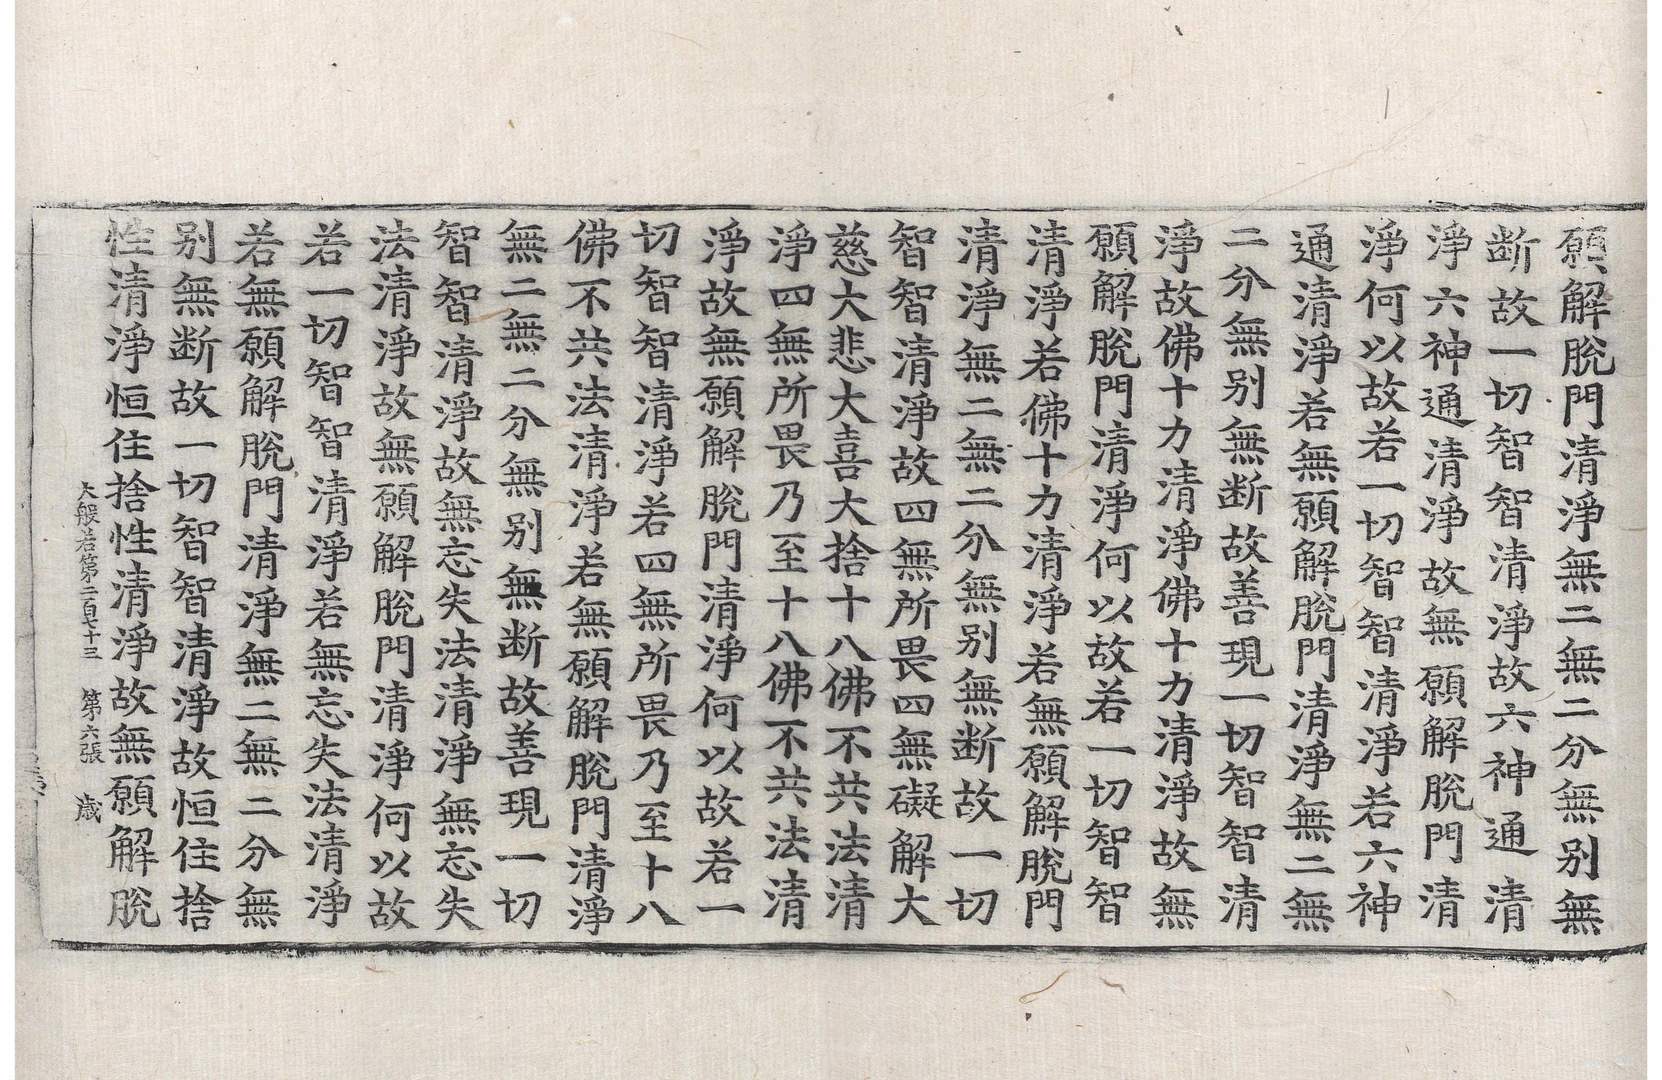 願解脫門清淨無二無二分無別無
断故一切智智清淨故六神通清
淨六神通清淨故無願解脫門清
淨何以故若一切智智清淨若六神
通清淨若無願解脫門清淨無二無
二分無別無断故善現一切智智清
淨故佛十力清淨佛十力清淨故無
願解脫門清淨何以故若一切智智
清淨若佛十力清淨若無願解脫門
清淨無二無二分無別無断故一切
智智清淨故四無所畏四無礙解大
慈大悲大喜大捨十八佛不共法清
淨四無所畏乃至十八佛不共法清
淨故無願解脫門清淨何以故若一
切智智清淨若四無所畏乃至十八
佛不共法清淨若無願解脫門清淨
無二無二分無別無断故善現一切
智智清淨故無忘失法清淨無忘失
法清淨故無願解脫門清淨何以故
若一切智智清淨若無忘失法清淨
若無願解脫門清淨無二無二分無
別無断故一切智智清淨故恒住捨
性清淨恒住捨性清淨故無願解脫
大般若第二百七十三 第六張 歲